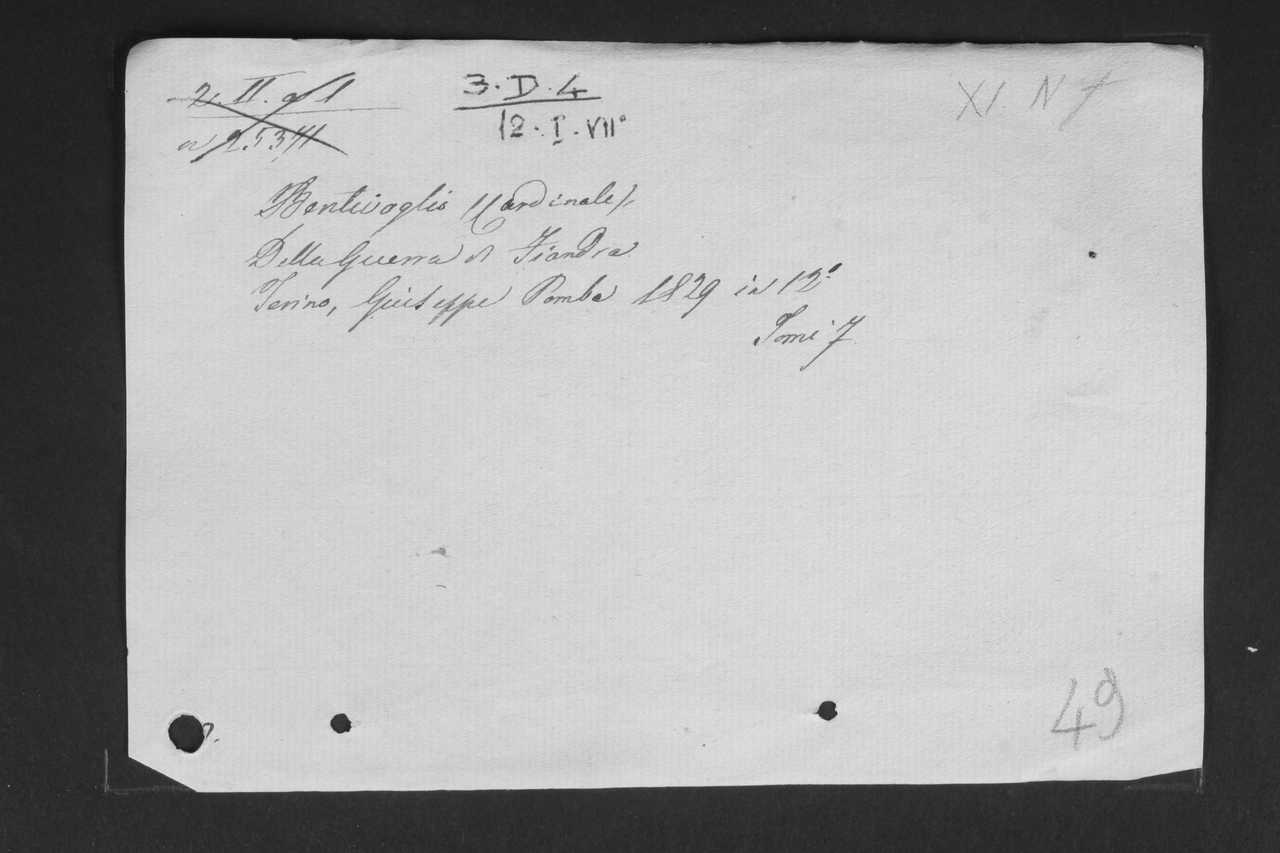 3. D. 4
12. I. VII°
XI. N
Bentivoglio (Cardinale)
Della Guerra di Fiandra
Torino, Giuseppe Pomba 1829 in 12°
Tomi 7
49